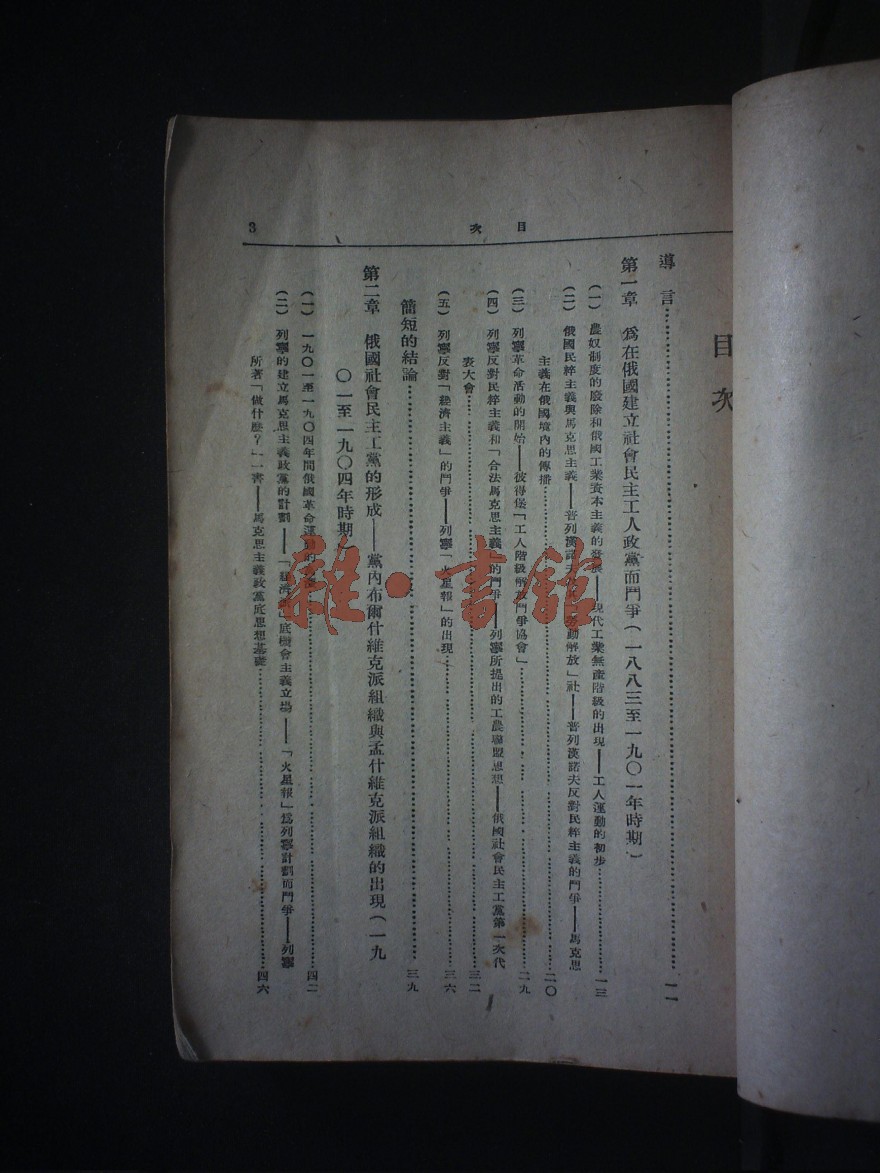 目次
3
目次
導言……………一一
第一章 爲在俄國建立社會民主工人政黨而鬥爭(一八八三至一九〇一年時期)
(一) 農奴制度的廢除和俄國工業資本主義的發展——現代工業無產階級的出現——工人運動的初步……………一三
(二) 俄國民粹主義與馬克思主義——普列漢諾夫 勞動解放」社——普列漢諾夫反對民粹主義的鬥爭——馬克思
主義在俄國境內的傳播……………二〇
(三) 列寧革命活動的開始——彼得堡「工人階級解放鬥爭協會」……………二九
(四) 列寧反對民粹主義和「合法馬克思主義」的鬥爭——列寧所提出的工農聯盟思想——俄國社會民主工黨第一次代
表大會……………三二
(五) 列寧反對「經濟主義」的鬥爭——列寧「火星報」的出現……………三六
簡短的結論……………三九
第二章 俄國社會民主工黨的形成——黨內布爾什維克派組織與孟什維克派組織的出現(一九
〇一至一九〇四年時期)
(一) 一九〇一至一九〇四年間俄國革命運動的……………四二
(二) 列寧的建立馬克思主義政黨的計劃——「經濟派」底機會主義立場——「火星報」爲列寧計劃而鬥爭——列寧
所著「做什麼?」一書——馬克思主義政黨底思想基礎……………四六
雜·書館